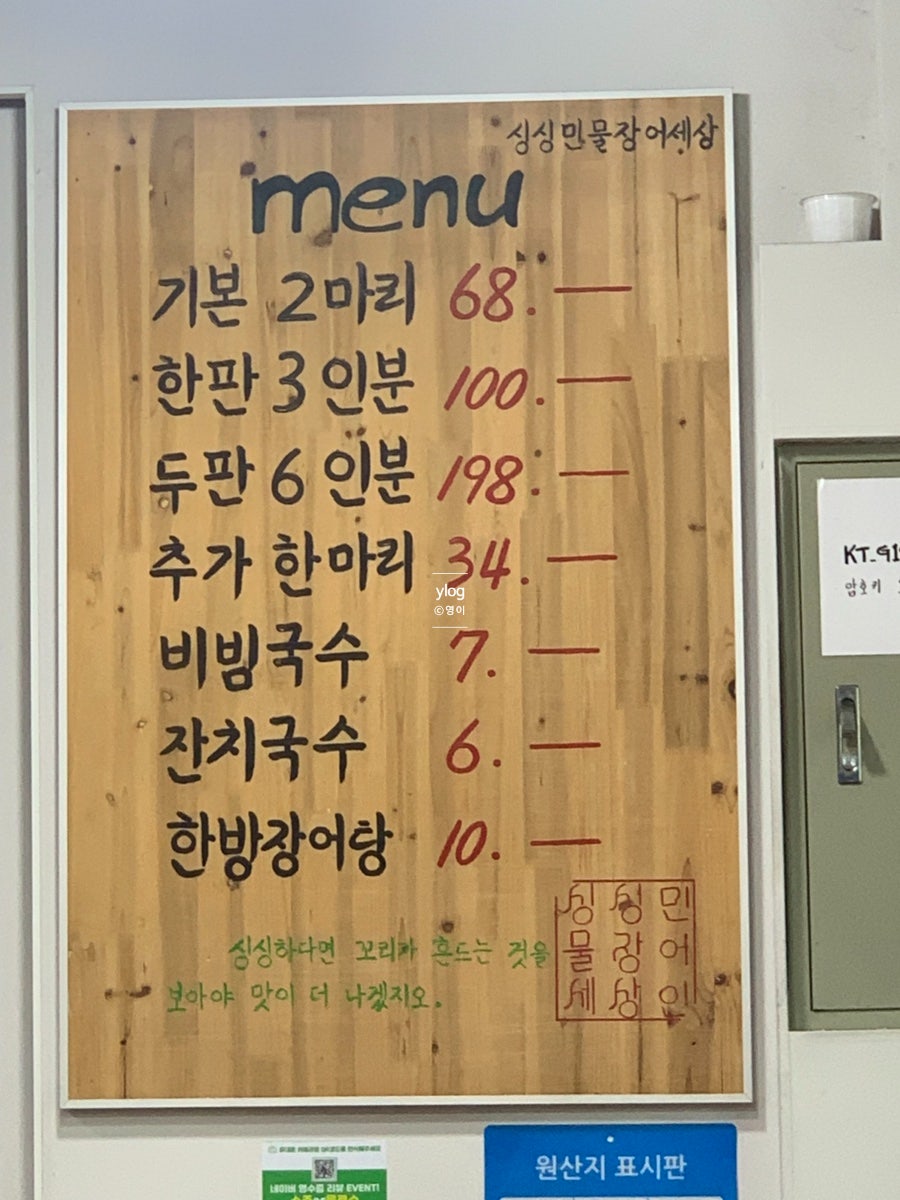 싱싱민물장어세상
menu
기본 2마리 68.—
한판 3인분 100.—
두판 6인분 198.—
추가 한마리 34.—
ylog
©영이
비빔국수 7.—
잔치국수 6.—
한방장어탕 10.—
싱싱하다면 꼬리가 흔드는 것을
보아야 맛이 더 나겠지요.
싱싱민
물장어
세상인
KT_91
암호키
네이버 영수증 리뷰 EVENT!
원산지 표시판